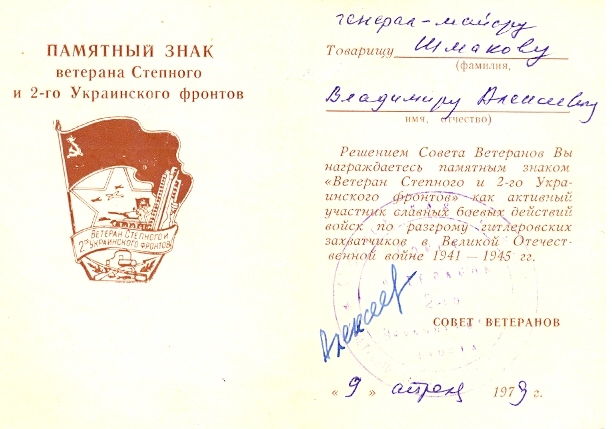 ПАМЯТНЫЙ ЗНАК
ветерана Степного
и 2-го Украинского фронтов
ВЕТЕРАН СТЕПНОГО И
2го УКРАИНСКОГО ФРОНТОВ
генерал-майору
Товарищу Шмакову
(фамилия,
Владимиру Алексеевичу
имя, отчество)
Решением Совета Ветеранов Вы
награждаетесь памятным знаком
«Ветеран Степного и 2-го Укра-
инского фронтов» как активный
участник славных боевых действий
войск по разгрому гитлеровских
захватчиков в Великой Отечест-
венной войне 1941—1945 гг.
ВЕТЕРАНОВ
2-го
Алексеев
СОВЕТ ВЕТЕРАНОВ
«9» апреля 197 г.